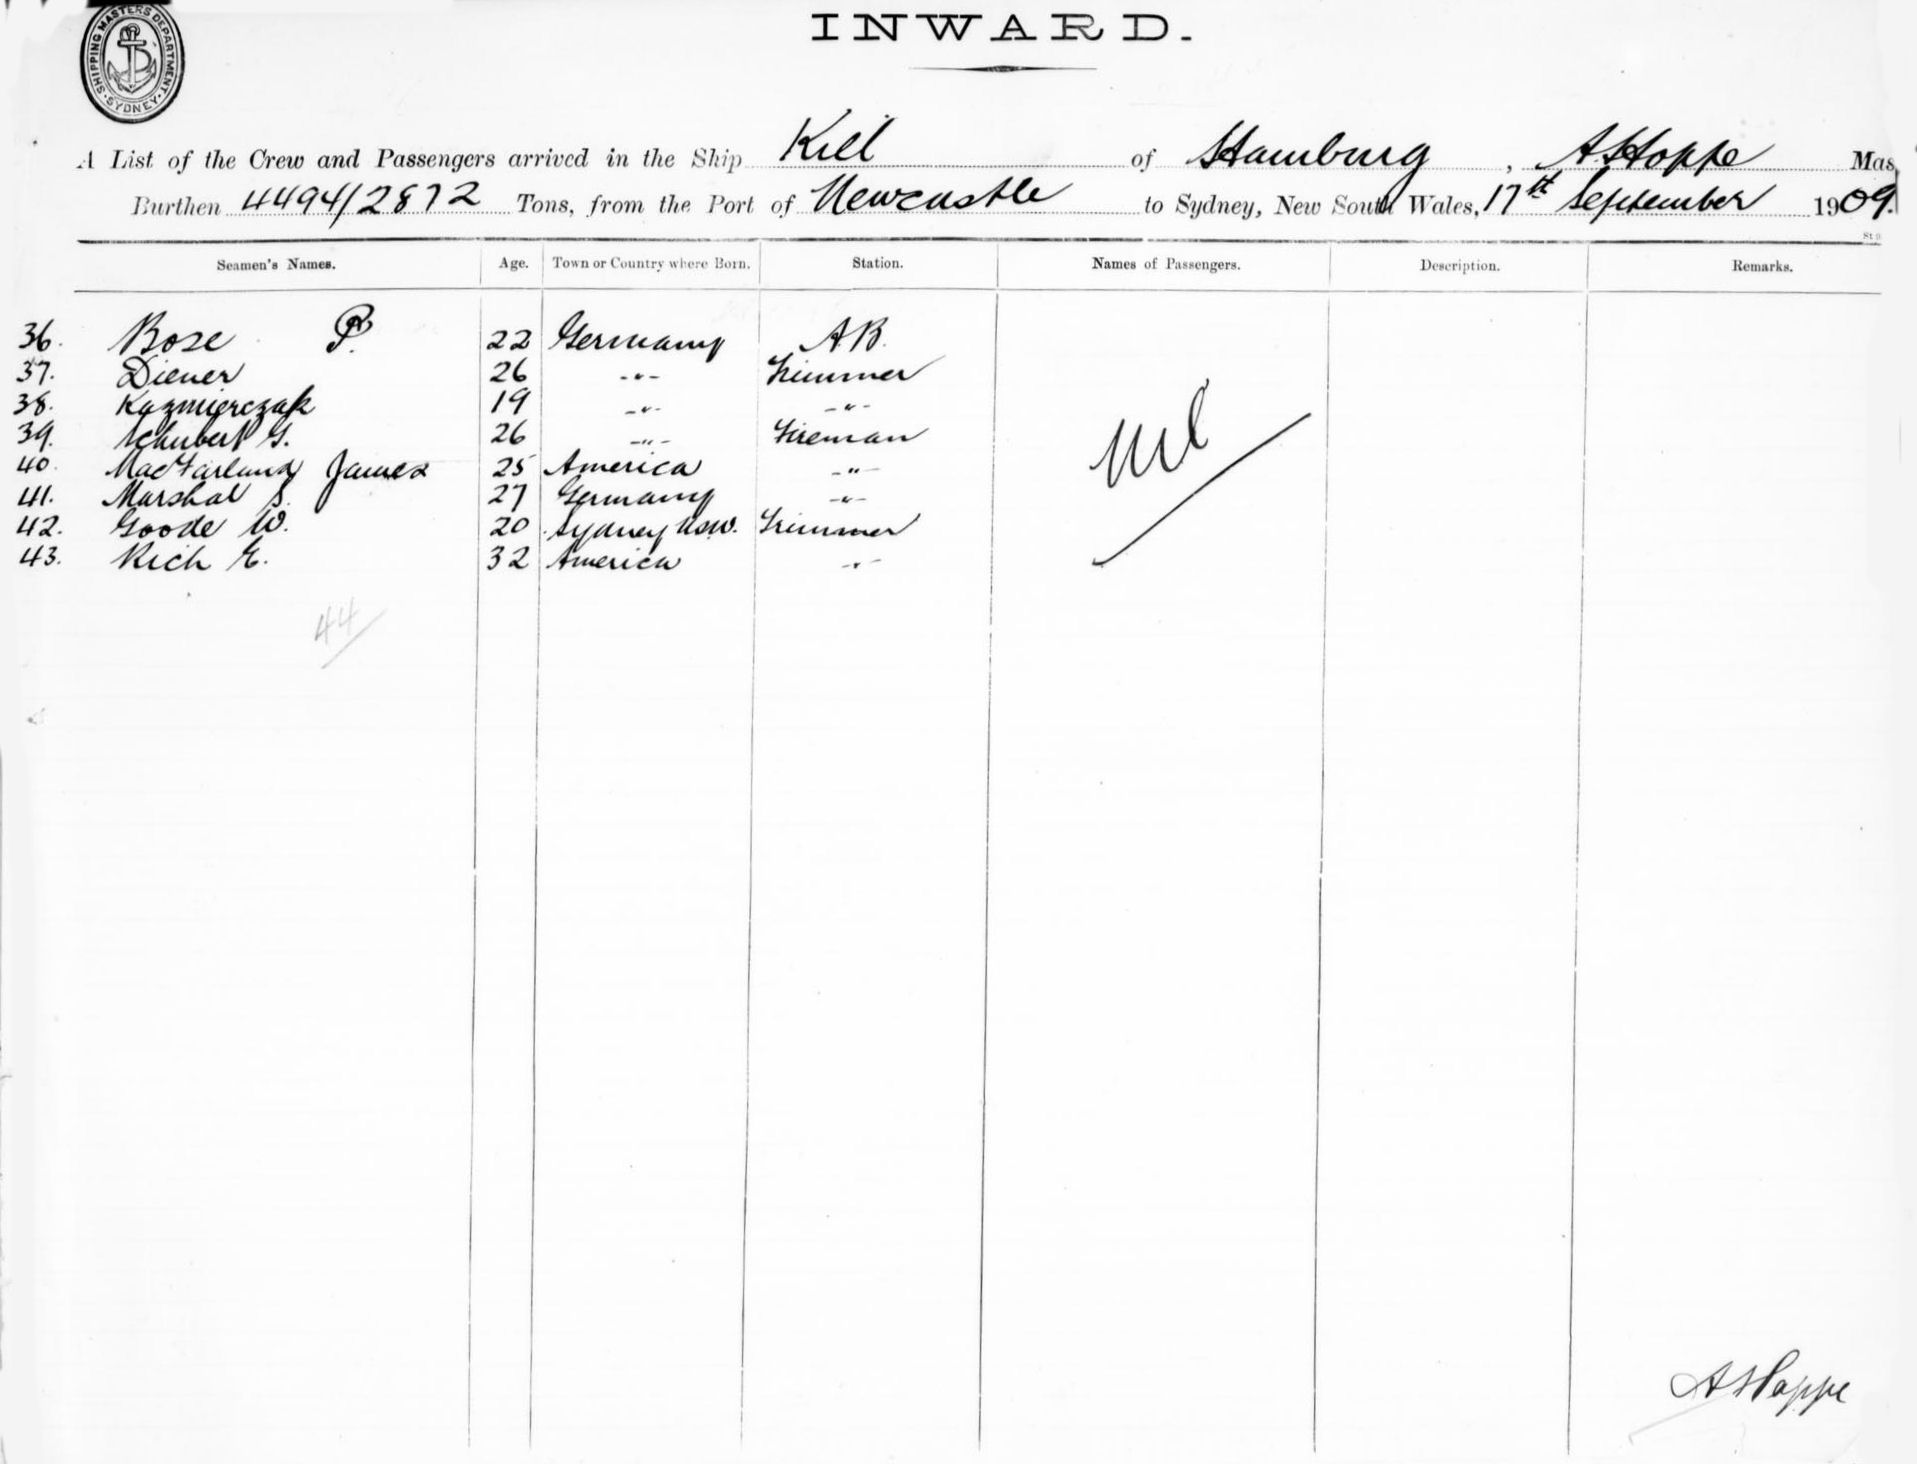 INWARD.
SHIPPING MASTERS DEPARTMENT. SYDNEY.
A List of the Crew and Passengers arrived in the Ship Kiel of Hamburg, A. Hoppe Mas
Burthen 4494/2872 Tons, from the Port of Newcastle to Sydney, New South Wales, 17th September 1909.
Seamen's Names. Age. Town or Country where Born. Station. Names of Passengers. Description. Remarks.
36. Bose P. 22 Germany A.B.
37. Diener 26 -"- Trimmer
38. Kazmierczak 19 -"- -"-
39. Schubert G. 26 -"- Fireman
40. MacFarland James 25 America -"-
41. Marshal S. 27 Germany -"-
42. Goode W. 20 Sydney NSW. Trimmer
43. Rich E. 32 America -"-
Nil
44
A Hoppe